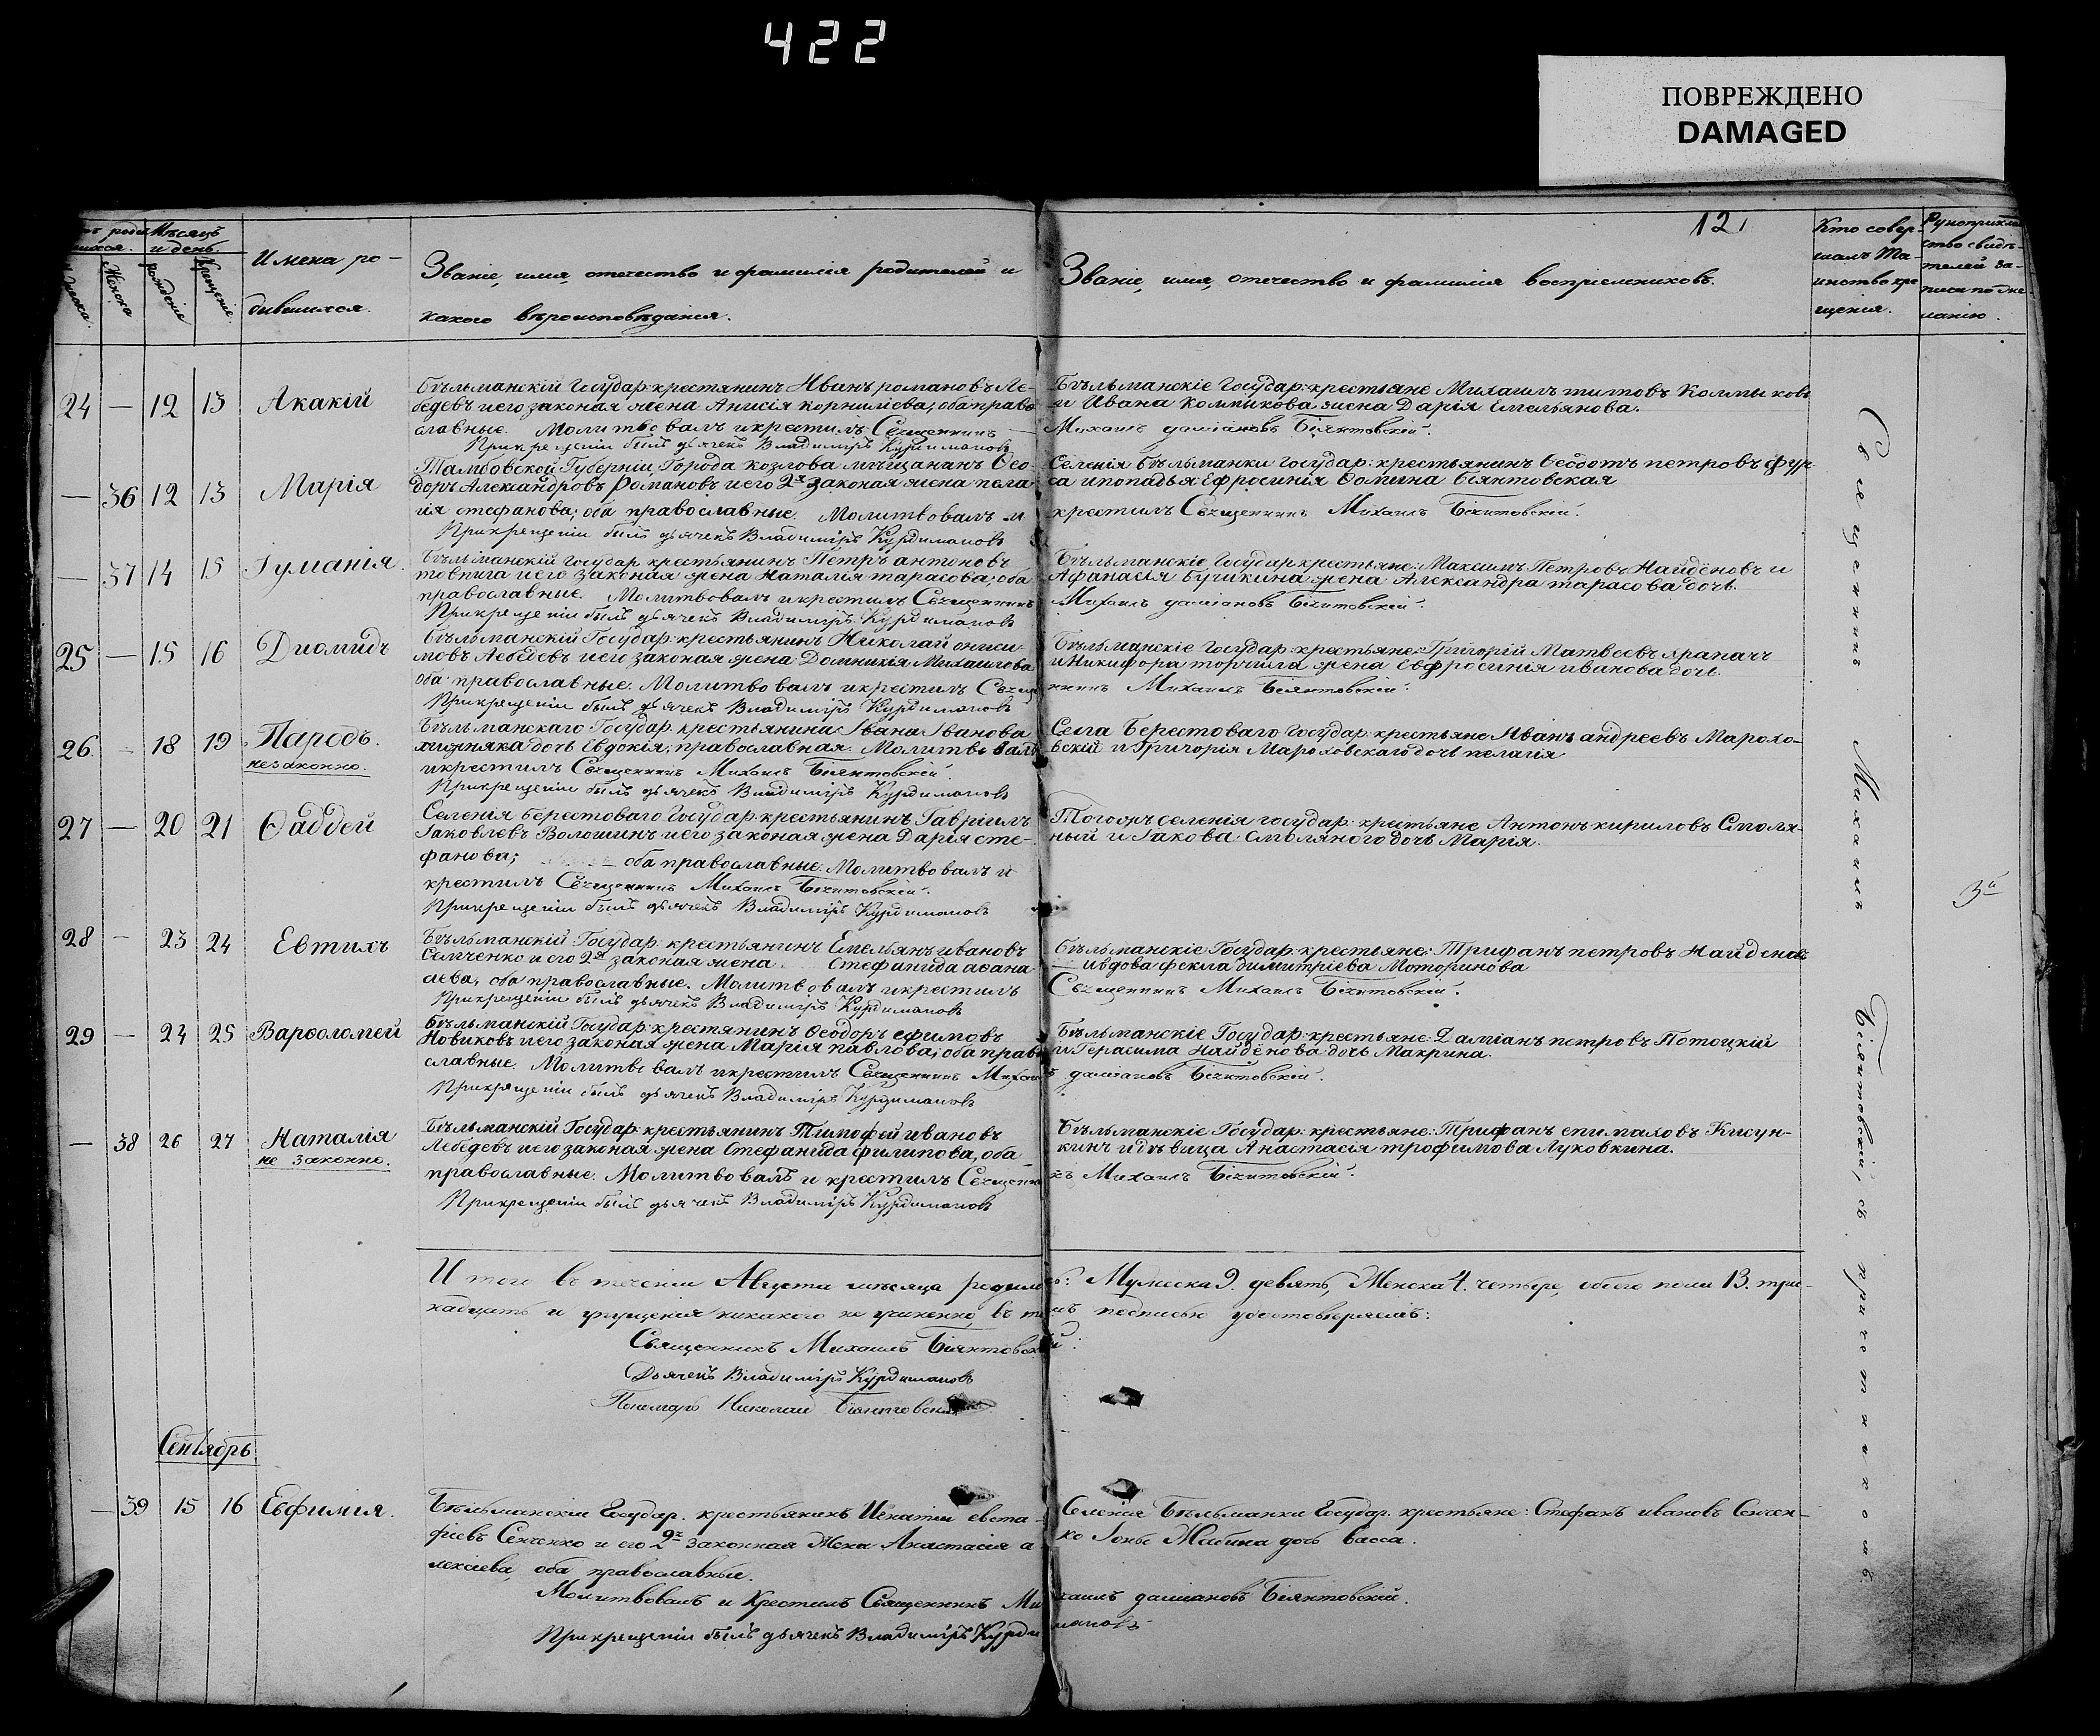 422
ПОВРЕЖДЕНО
DAMAGED
12
Мѣсяцъ и день.
Женска
рожденія
Крещенія.
Имена ро-
дившихся.
Званіе, имя, отечество и фамилія родителей и
какого вѣроисповѣданія.
Званіе, имя, отечество и фамилія воспріемниковъ.
Кто совер-
шалъ Та-
инство кре
щенія.
Рукоприкла
ство свидѣ-
телей за-
писи по же
ланію.
24 — 12 13 Акакій
Бѣльманскій Государ: крестянинъ Иванъ романовъ Ле-
бедевъ и его законая жена Анисія корниліева, оба право
славные. Молитвовалъ и крестилъ Священникъ —
При крещеніи былъ дьячекъ Владиміръ Курдимановъ
Бѣльманскіе Государ: крестьяне Михаилъ титовъ Колмыковъ
и Ивана Колмыкова жена Дарія Емельянова.
Михаилъ даміановъ Біянтовскій.
— 36 12 13 Марія
Тамбовской Губерніи, Города козлова мѣщананъ Ѳео-
доръ Александровъ Романовъ и его 2я законая жена пела-
гія стефанова; оба православные. Молитвовалъ и
При крещеніи былъ дьячекъ Владиміръ Курдимановъ
Селенія Бѣльманки Государ: крестьянинъ Ѳеодотъ петровъ фур
са и попадья Ефросинія Ѳомина Біянтовская
крестилъ Священникъ Михаилъ Біянтовскій.
— 37 14 15 Іуліанія.
Бѣльманскій Государ крестьянинъ Петръ антоновъ
товпига и его законая жена Наталія тарасова; оба
православные. Молитвовалъ и крестилъ Священникъ
При крещеніи былъ дьячекъ Владиміръ Курдимановъ
Бѣльманскіе Государ крестьяне: Максимъ Петровъ Найдёновъ и
Афанасія Бушкина жена Александра тарасова дочь.
Михаилъ даміановъ Біянтовскій.
25 — 15 16 Диомидъ
Бѣльманскій Государ: крестьянинъ Николай ониси
мовъ Лебедевъ и его законая жена Домникія Михаилова
оба православные. Молитвовалъ и крестилъ Свяще
При крещеніи былъ дьячекъ Владиміръ Курдимановъ
Бѣльманскіе Государ: крестьяне: Григорій Матвеевъ храпачъ
и Никифора жена Евфросинія иванова дочь.
нникъ Михаилъ Біянтовскій.
26 — 18 19 Пародъ.
незаконно.
Бѣльманскаго Государ. крестьянина Ивана Иванова
хижняка дочь Евдокія, православная. Молитвовалъ
и крестилъ Священникъ Михаилъ Біянтовскій.
При крещеніи былъ дьячекъ Владиміръ Курдимановъ
Села Берестоваго Государ: крестьяне Иванъ андреевъ Марохо-
вскій и Григорія Мароховскаго дочь пелагія
27 — 20 21 Ѳаддей
Селенія берестоваго Государ. крестьянинъ Гавріилъ
Іаковлевъ Волошинъ и его законая жена Дарія сте-
фанова; оба православные. Молитвовалъ и
крестилъ Священникъ Михаилъ Біянтовскій.
При крещеніи былъ дьячекъ Владиміръ Курдимановъ
Тогожъ селенія государ: крестьяне Антонъ кириловъ Смоля-
ный и Іакова Смолянаго дочь Марія.
28 — 23 24 Евтихъ
Бѣльманскій Государ: крестьянинъ Емельянъ ивановъ
Семченко и его 2я законая жена Стефанида аѳана
сіева, оба православные. Молитвовалъ и крестилъ
При крещеніи былъ дьячекъ Владиміръ Курдимановъ
Бѣльманскіе Государ: крестьяне: Трифанъ петровъ Найденовъ
и вдова фекла димитріева Моторинова
Священникъ Михаилъ Біянтовскій.
29 — 24 25 Варѳоломей
Бѣльманскій Государ: крестянинъ Ѳеодоръ ефимовъ
Новиковъ и его законая жена Марія павлова; оба право
славные. Молитвовалъ и крестилъ Священникъ Михаил
При крещеніи былъ дьячекъ Владиміръ Курдимановъ
Бѣльманскіе Государ: крестьяне: Даміанъ петровъ Потоцкій
и Герасима Найдёнова дочь Макрина.
ъ даміановъ Біянтовскій.
— 38 26 27 Наталія
не законно.
Бѣльманскій Государ: крестьянинъ Тимофей ивановъ
Лебедевъ и его законая жена Стефанида филипова, оба
православные. Молитвовалъ и крестилъ Священни
При крещеніи былъ дьячекъ Владиміръ Курдимановъ
Бѣльманскіе Государ: крестьяне: Трифанъ епимаховъ Кисун-
кинъ и дѣвица Анастасія трофимова Луковкина.
къ Михаилъ Біянтовскій.
Итого въ теченіи Августа мѣсяца родилось: Мужеска 9. девять, Женска 4. четыре, обоего пола 13. три-
надцать и упущенія никакого не учинено, въ томъ подписью удостовѣряемъ:
Священникъ Михаилъ Біянтовскій.
Дьячекъ Владиміръ Курдимановъ
Пономарь Николай Біянтовскій
Священникъ Михаилъ Біянтовскій, съ причетниками.
Сентябрь
— 39 15 16 Евфимія.
Бѣльманскій Государ. крестьянинъ Игнатій евста-
фіевъ Сенченко и его 2я законная Жена Анастасія а
лексіева, оба православные.
Молитвовалъ и Крестилъ Священникъ Михаилъ даміановъ Біянтовскій.
При крещеніи былъ дьячекъ Владиміръ Курдимановъ
Селенія Бѣльманки Государ. крестьяне: Стефанъ ивановъ Сенчен-
ко Іоны Жабина дочь Васса.